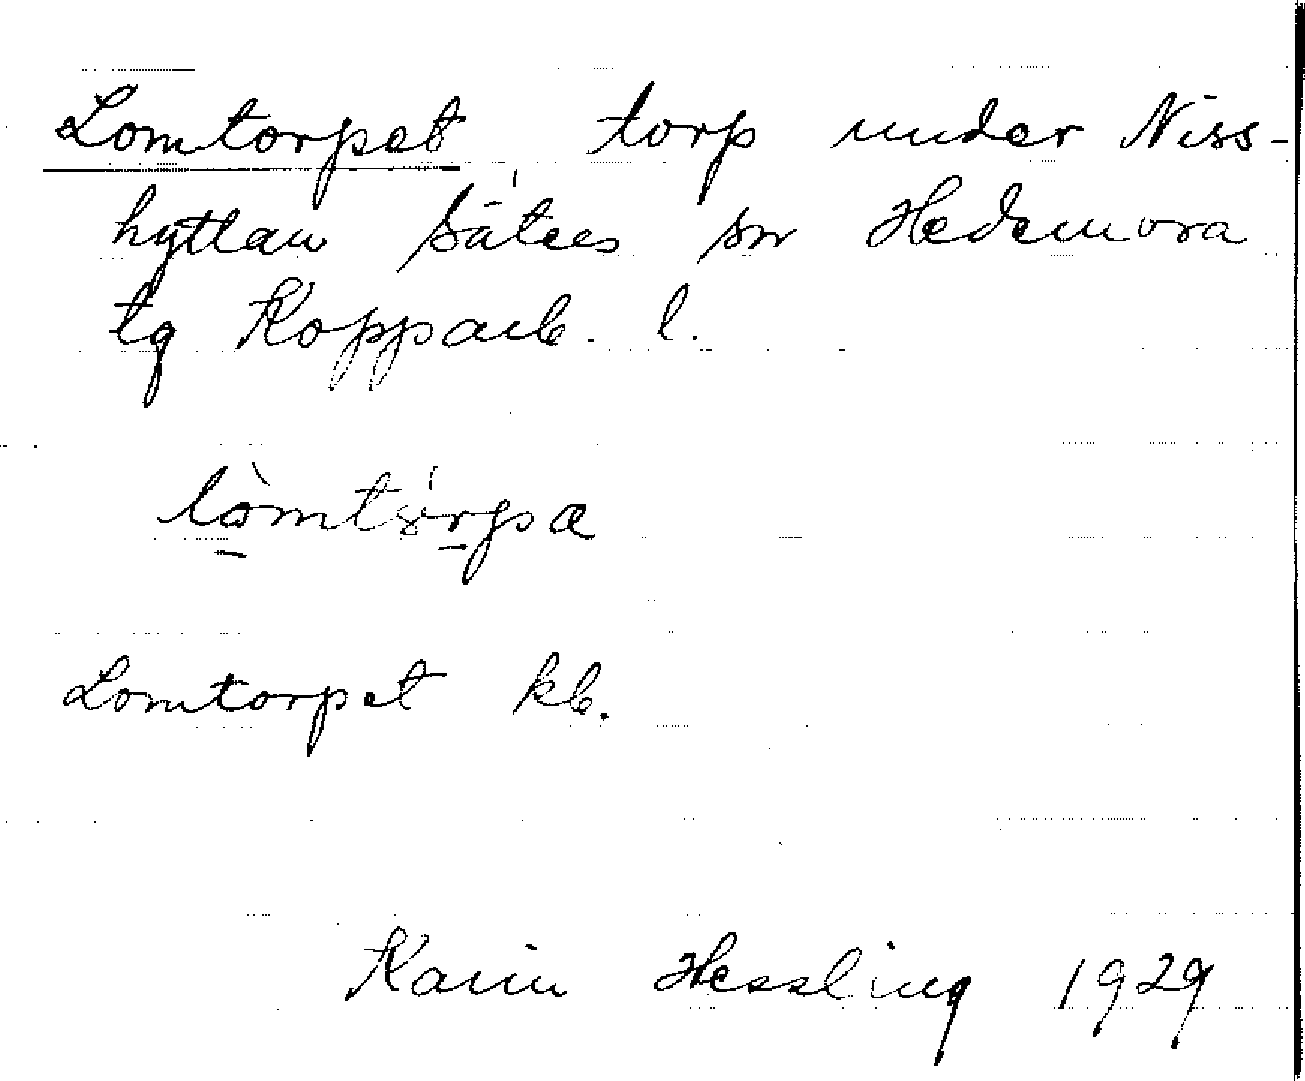 Lomtorpet torp under Niss-
hyttan Säters sn Hedemora
tg Kopparb. l.
lòmtórpa
Lomtorpet kb.
Karin Hessling 1929